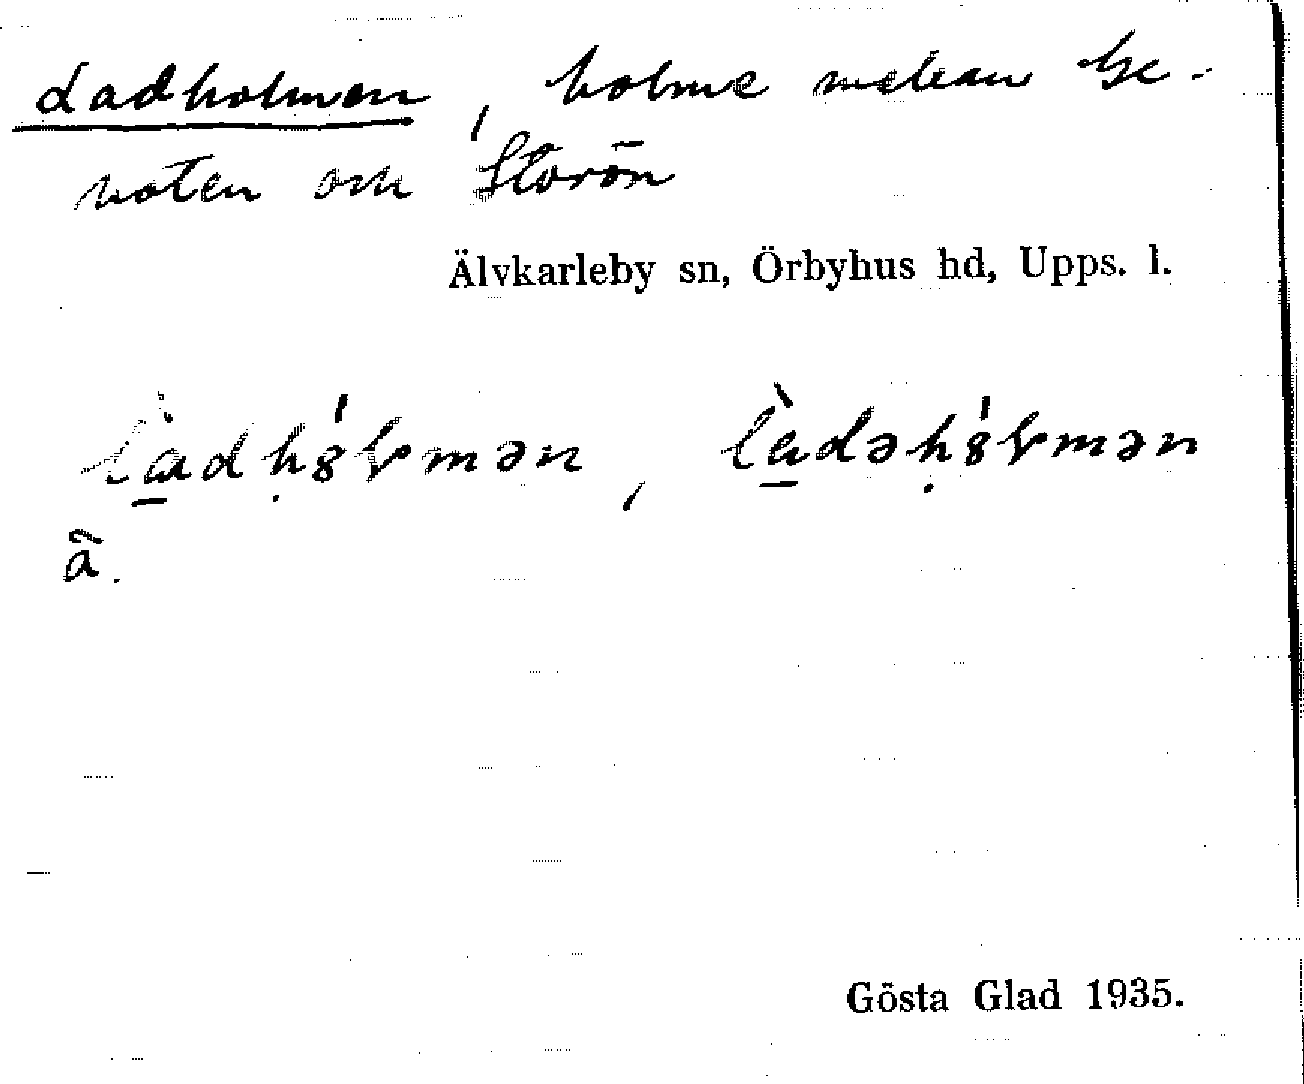 Ladholmen, holme mellan Se-
noten och Storön
Älvkarleby sn, Örbyhus hd, Upps. l.
là̱dḥ8́lvmən, là̱dəḥ8́lvmən
ã.
Gösta Glad 1935.